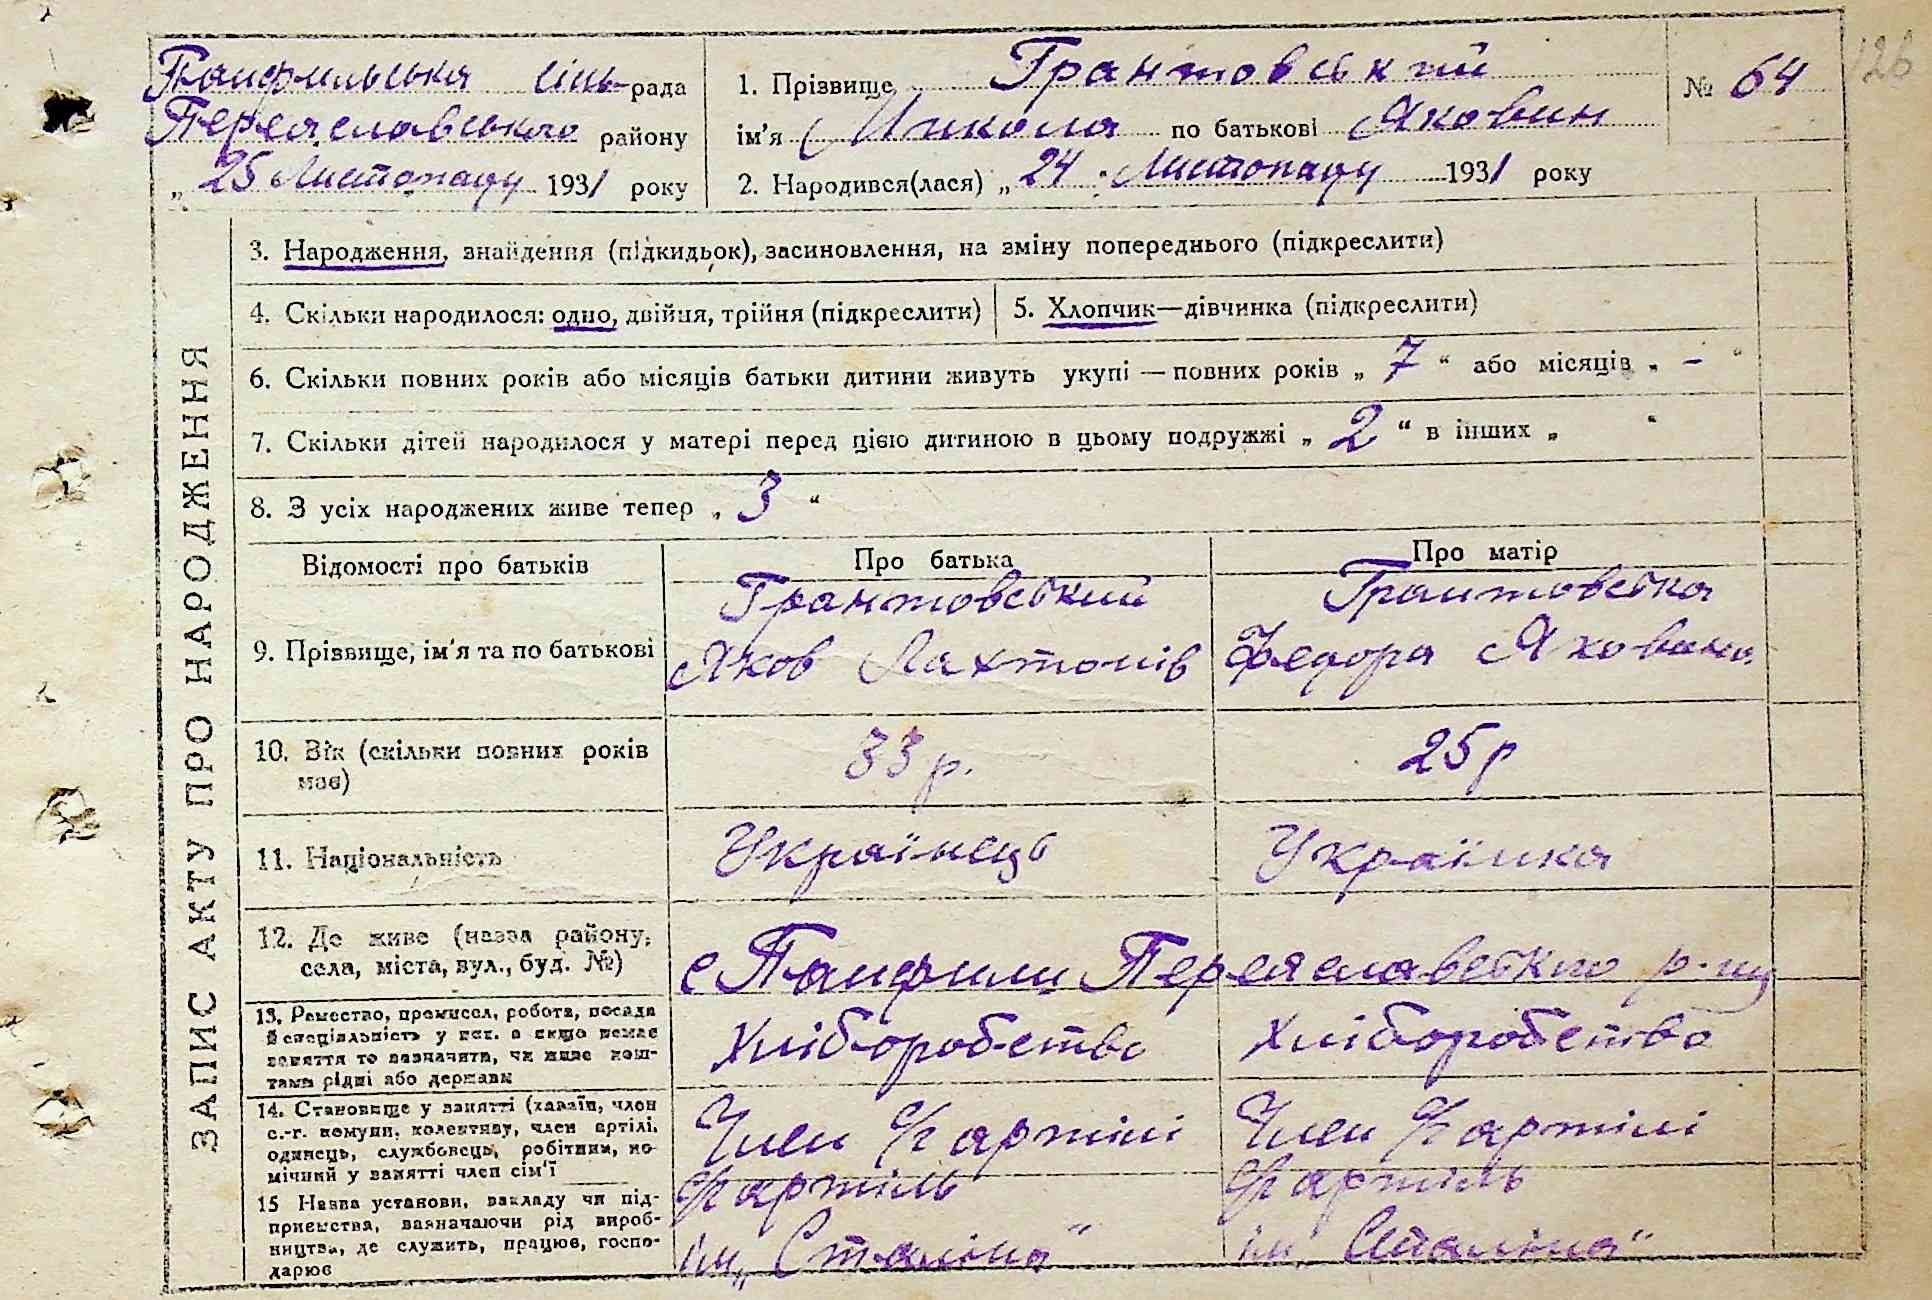 Панфильська сіль-рада
Переяславського району
„ 25 Листопаду 1931 року
1. Прізвище Грантовський
ім'я Микола по батькові Яковин
2. Народився(лася) „ 24 Листопаду 1931 року
№ 64
126
ЗАПИС АКТУ ПРО НАРОДЖЕННЯ
3. Народження, знайдення (підкидьок), засиновлення, на зміну попереднього (підкреслити)
4. Скільки народилося: одно, двійня, трійня (підкреслити)
5. Хлопчик—дівчинка (підкреслити)
6. Скільки повних років або місяців батьки дитини живуть укупі — повних років „ 7 “ або місяців „ - “
7. Скільки дітей народилося у матері перед цією дитиною в цьому подружжі „ 2 “ в інших „ “
8. З усіх народжених живе тепер „ 3 “
Відомості про батьків
Про батька
Про матір
9. Прізвище, ім'я та по батькові
Грантовський
Яков Лахтонів
Грантовська
Федора Яковівна
10. Вік (скільки повних років
має)
33 р.
25 р
11. Національність
Українець
Українка
12. Де живе (назва району,
села, міста, вул., буд. №)
с Панфили Переяславського р-ну
13. Ремество, промисел, робота, посада
й спеціяльність у ній, а якщо немає
заняття то зазначити, чи живе кош-
тами рідні або держави
Хліборобство
Хліборобство
14. Становище у занятті (хазяїн, член
с.-г. комуни, колективу, член артілі,
одинець, службовець, робітник, по-
мічний у занятті член сім'ї
Член с/г артілі
Член с/г артілі
15 Назва установи, закладу чи під-
приємства, зазначаючи рід вироб-
ництва, де служить, працює, госпо-
дарює
с/г артіль
ім „Сталіна"
с/г артіль
ім „Сталіна"